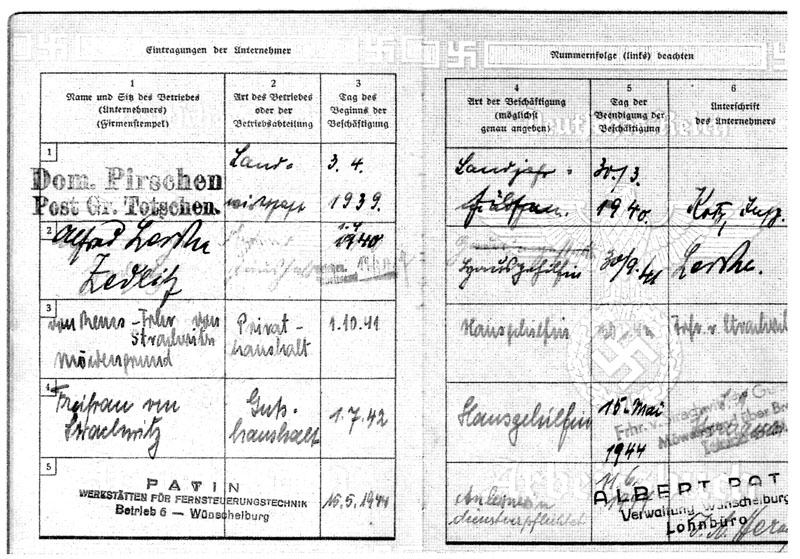 Eintragungen der Unternehmer
1
Name und Sitz des Betriebes
(Unternehmers)
(Firmenstempel)
2
Art des Betriebes
oder der
Betriebsabteilung
3
Tag des
Beginns der
Beschäftigung
1
Dom. Pirschen
Post Gr. Totschen.
Land-
wirtschaft
3. 4.
1939.
2
Alfred Leske
Zedlitz
1.4
1940
3
Frhr von
Strachwitz
Möwengrund
Privat-
haushalt
1.10.41
4
Freifrau von
Strachwitz
Guts-
haushalt
1.7.42
5
PATIN
WERKSTÄTTEN FÜR FERNSTEUERUNGSTECHNIK
Betrieb 6 — Wünschelburg
15.5.1944
Nummernfolge (links) beachten
4
Art der Beschäftigung
(möglichst
genau angeben)
5
Tag der
Beendigung der
Beschäftigung
6
Unterschrift
des Unternehmers
Landjahr-
30/3.
1940.
Hausgehilfin
30/9.41
Leske.
Hausgehilfin
Frhr. v. Strachwitz
Hausgehilfin
15. Mai
1944
Frhr. v. Strachwitz
Möwengrund über
Anlernerin
dienstverpflichtet
ALBERT PAT
Verwaltung Wünschelburg
Lohnbüro